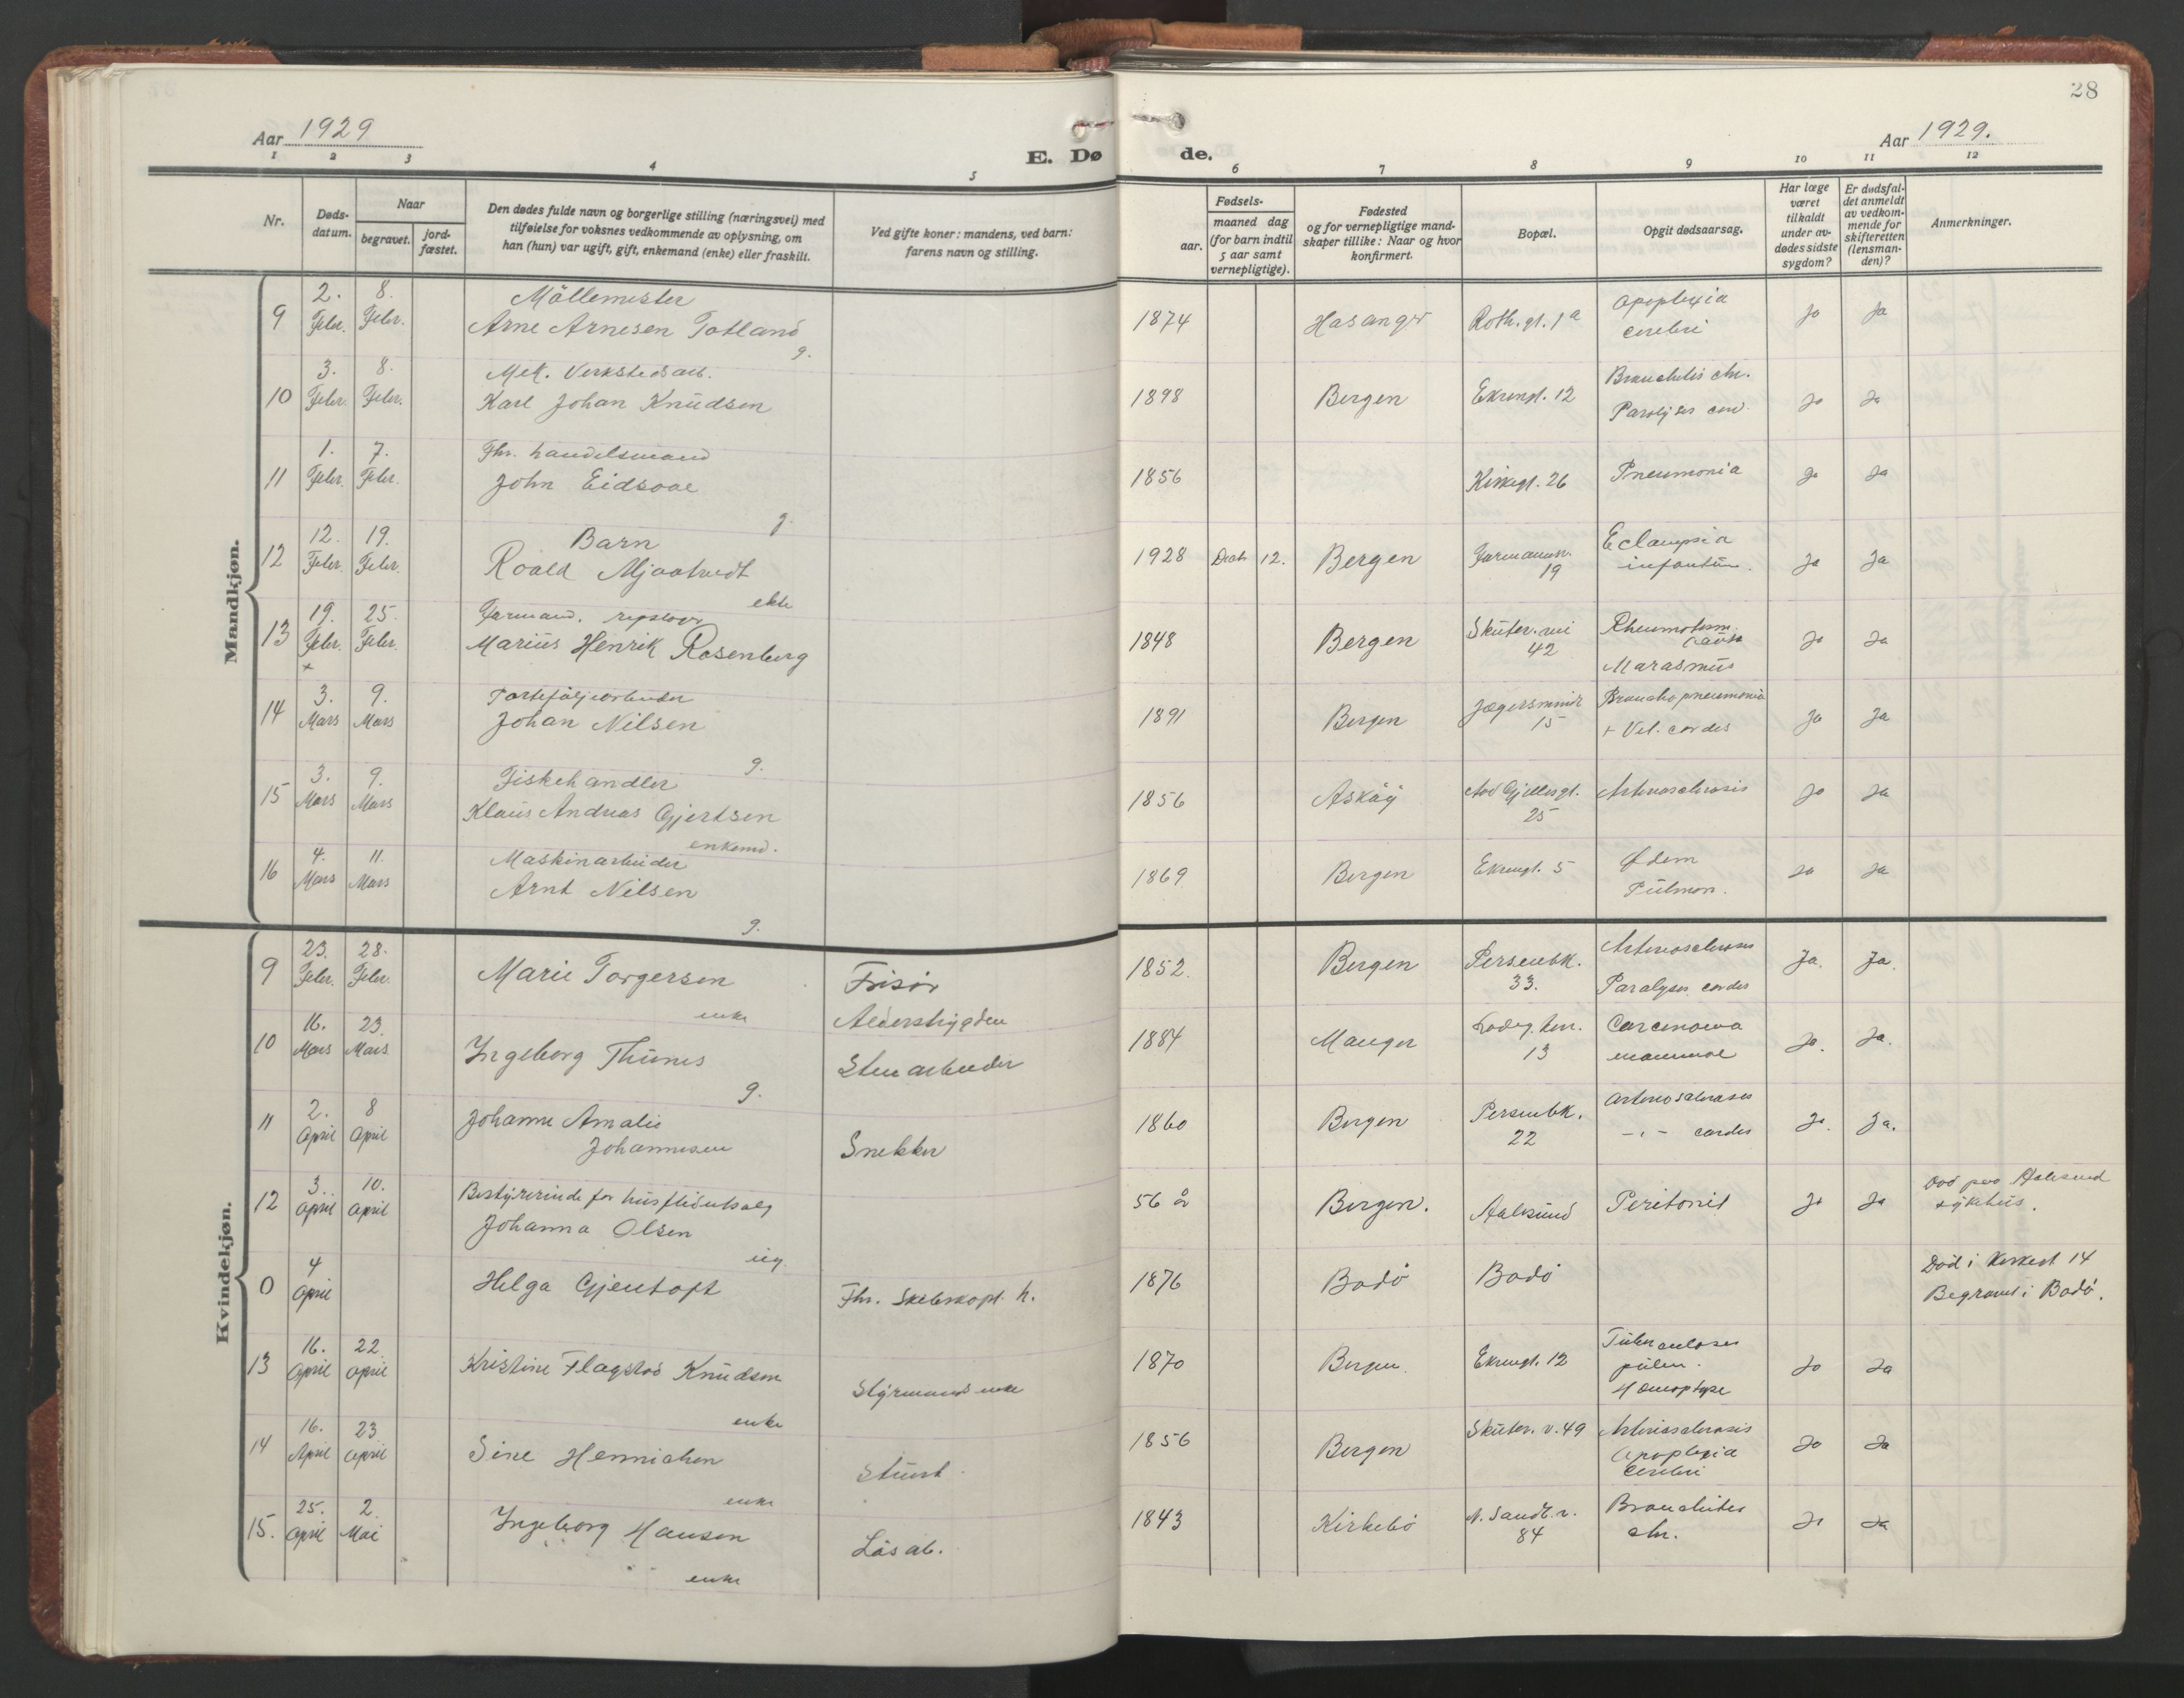 28
Aar 1929
Aar 1929.
E. Døde.
1 2 3 4 5 6 7 8 9 10 11 12
Nr.
Døds-
datum.
Naar
begravet.
jord-
fæstet.
Den dødes fulde navn og borgerlige stilling (næringsvei) med
tilføielse for voksnes vedkommende av oplysning, om
han (hun) var ugift, gift, enkemand (enke) eller fraskilt.
Ved gifte koner: mandens, ved barn:
farens navn og stilling.
Fødsels-
aar.
maaned dag
(for barn indtil
5 aar samt
vernepligtige).
Fødested
og for vernepligtige mand-
skaper tillike: Naar og hvor
konfirmert.
Bopæl.
Opgit dødsaarsag.
Har læge
været
tilkaldt
under av-
dødes sidste
sygdom?
Er dødsfal-
det anmeldt
av vedkom-
mende for
skifteretten
(lensman-
den)?
Anmerkninger.
Mandkjøn.
9 2. Febr. 8. Febr. Möllemester
Arne Arnesen Totland g.
1874 Roth.gt. 1a Apoplexia
cerebri Ja Ja
10 3. Febr. 8. Febr. Mek. Verkstedsarb.
Karl Johan Knudsen
1898 Bergen Ekrengt. 12 Bronchitis chr.
Paralyses cord. Ja Ja
11 1. Febr. 7. Febr. Fhv. handelsmand
John Eidsaae
g.
1856 Kirkegt. 26 Pneumonia Ja Ja
12 12. Febr. 19. Febr. Barn
Roald Mjaatvedt
ekte
1928 Decb. 12. Bergen Formannsv.
19 Eclampsia
infantum. Ja Ja
13 19. Febr. 25. Febr. Formand. repslager
Marius Henrik Rosenberg
1848 Bergen Skuter.vei
42 Rheumatism.
Marasmus Ja Ja
14 3. Mars 9. Mars Porteföljearbeider
Johan Nilsen
g.
1891 Bergen Jægersminde
15 Bronchopneumonia
+ Vit. cordis Ja Ja
15 3. Mars 9. Mars Fiskehandler
Klaus Andreas Gjertsen
enkemd.
1856 Asköy 25 Arteriosclerosis Ja Ja
16 4. Mars 11. Mars Maskinarbeider
Arnt Nilsen
g.
1869 Bergen Ekrengt. 5 Ødem
Pulmon. Ja Ja
Kvindekjøn.
9 23. Febr. 28. Febr. Marie Torgersen
enke
Frisör
1852. Bergen Persenbk.
33. Arteriosclerosis
Paralyses cordis Ja. Ja.
10 16. Mars 23. Mars Ingeborg Thunes
g.
Alderstrygden
Stenarbeider
1884 Manger 13 Carcinoma
mammae Ja. Ja.
11 2. April 8 April Johanne Amalie
Johannesen
Snekker
1860 Bergen Persenbk.
22 Arteriosclerosis
-"- cordis Ja. Ja.
12 3. April 10. April Bestyrerinde for husflidutsalg
Johanna Olsen
ug.
56 år Bergen. Aalesund Peritonit Ja Ja Död paa Aalesund
sykehus.
0 4 April Helga Gjentoft
Fhv. h.
1876 Bodö Bodö Död i Kirkegt 14
Begravet i Bodö.
13 16. April 22 April Kristine Flagstad Knudsen
enke
Styrmands enke
1870 Bergen. Ekrengt. 12 Tuberculoses
pulm.
Hæmoptyse Ja Ja
14 16. April 23 April Sine Henrichsen
enke
Stuert.
1856 Bergen Skuter. v. 49 Arteriosclerosis
Apoplexia
cerebri Ja Ja
15. 25. April 2. Mai Ingeborg Hansen
enke
Lösarb.
1843 Kirkebö N. Sandb. v.
84 Bronchites
chr. Ja Ja